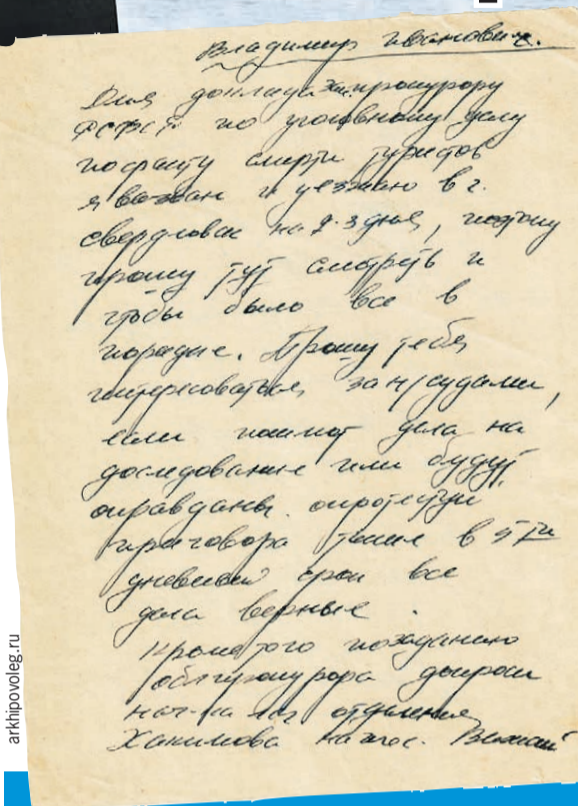 Владимир Иванович.
Для доклада зам. прокурору
РСФСР по уголовному делу
по факту смерти туристов
я вызван и уезжаю в г.
Свердловск на 2-3 дня, поэтому
прошу тут смотреть и
чтобы было все в
порядке. Прошу тебя
интересоваться за н/судами,
если пошлют дела на
доследование или будут
оправданы. опротестуй
приговора только в 5ти
дневный срок все
дела верные.
Кроме того по заданию
облпрокурора допроси
нач-ка отделения
Хакимова
arkhipovoleg.ru